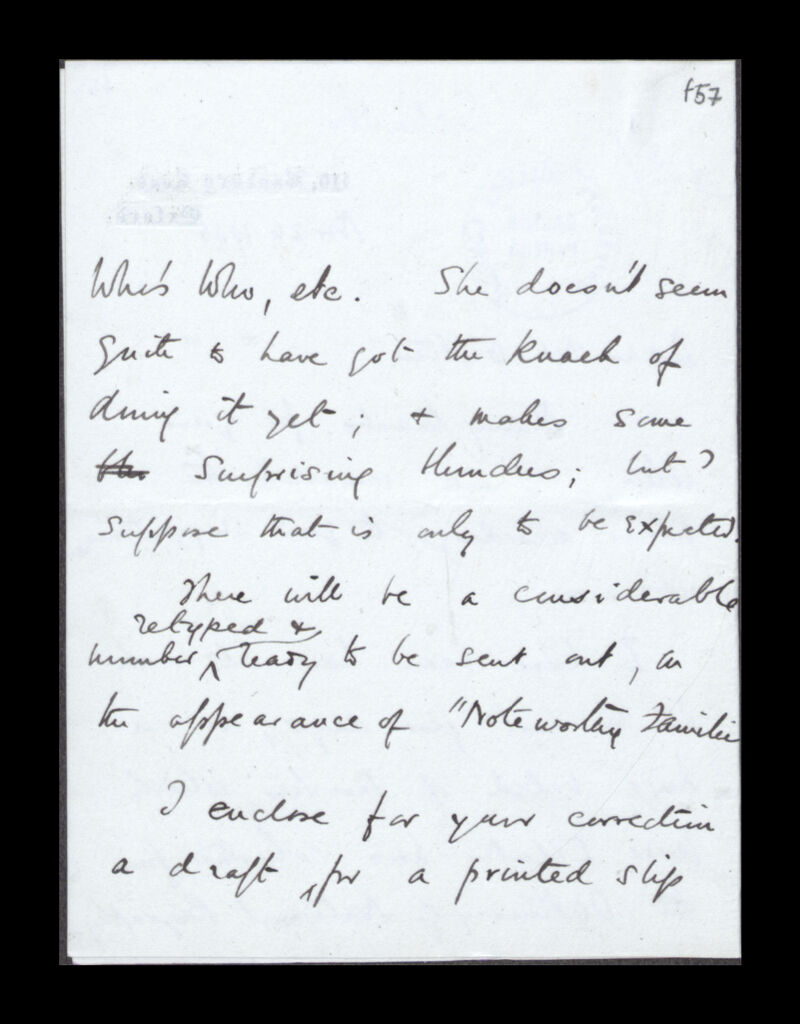 f57
Who's Who, etc. She doesn't seem
quite to have got the knack of
doing it yet; + makes some
surprising blunders; but I
suppose that is only to be expected.
There will be a considerable
retyped +
number ^ ready to be sent out, on
the appearance of "Noteworthy Families
I enclose for your correction
a draft ^ for a printed slip